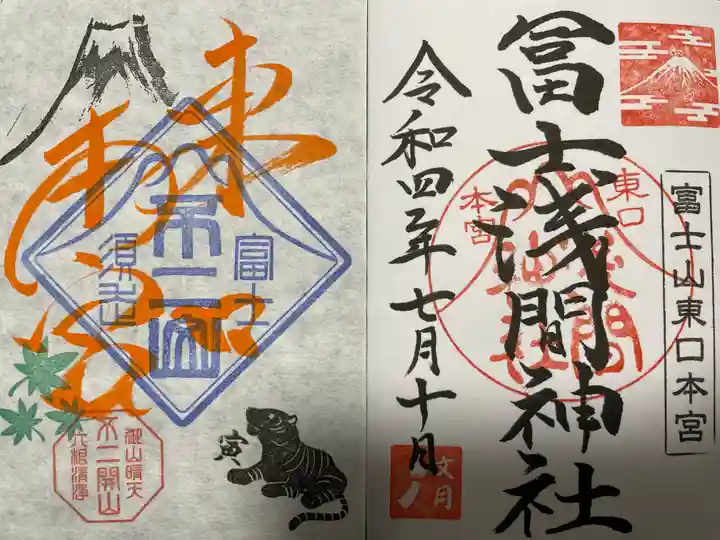 富士山東口本宮
冨士浅間神社
東口
本宮
令和四年七月十日
文月
東
本宮
富士
不二山
須走
御山晴天
不二開山
六根清浄
寅